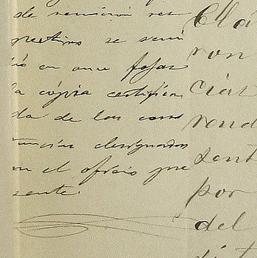 de remision res
pectivo se servi
rá en once fojas
la cópia certifica
da de las cons
tancias designadas
en el oficio pre
sente.
Clá
ron
cias
rend
sent
por
del